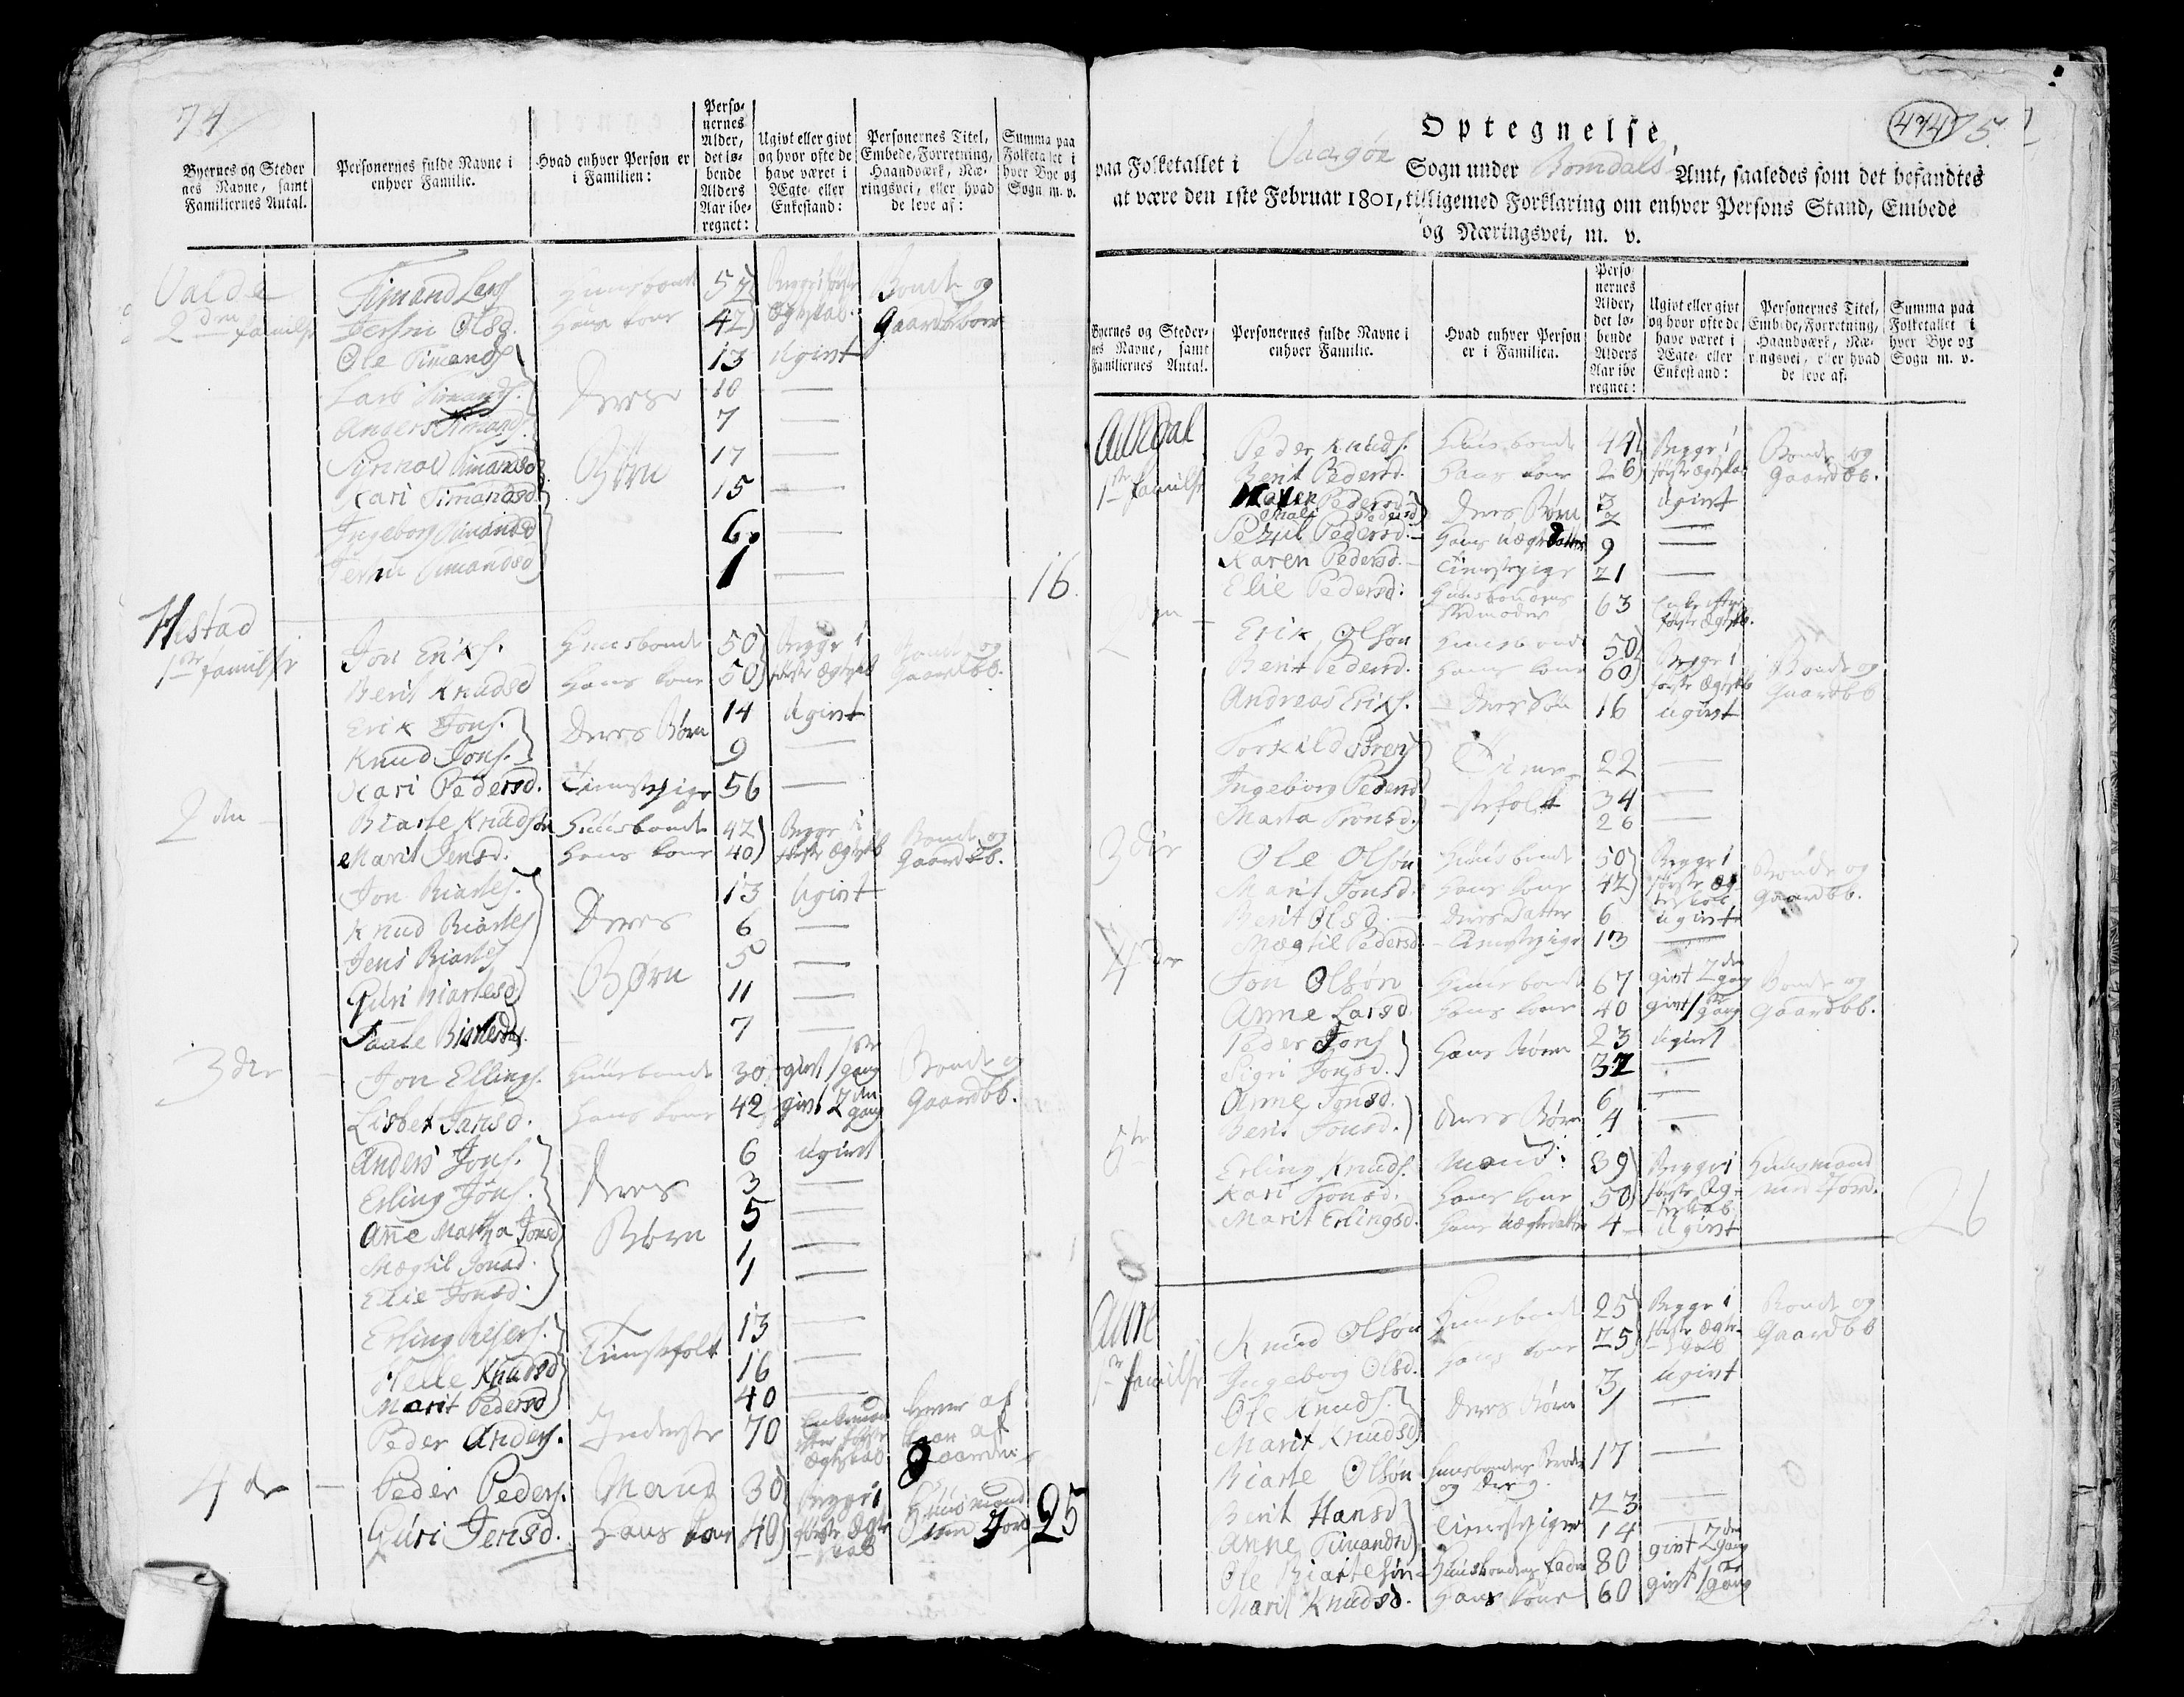 74
Byernes og Steder nes Navne, samt Familiernes Antal.
Personernes fulde Navne i enhver Familie.
Hvad enhver Person er i Familien:
Personernes Alder, det løbende Alders Aar iberegnet:
Ugivt eller givt og hvor ofte de have været i Ægte eller Enkestand:
Personernes Titel, Embede, Forretning, Haandværk, Næringsvei, eller hvad de leve af:
Summa paa Folketallet i hver Bye og Sogn m. v.
Valde
2den familje
Timand Larss Huusbonde 52 Begge i første Bonde og
Olsd. Hans kone 42 Ægteskab. Gaardbb
Ole Timands 13 Ugivt
Lars Timands. Deres 10 —
Anders Timands. 7 —
Timandsd Børn 17 —
Kari Timandsd. 15 —
Ingeborg Timandsd 6. —
Timandsd 1 —
16
1ste familje
Jon Eriks. Huusbonde 50 Begge i Bonde og
Berit Knudsd Hans kone 50 første Ægtskb Gaardbb.
Erik Jons. Deres Børn 14 Ugivt
Knud Jons. 9 —
Kari Pedersd. Tieneste pige 56 —
2den —
Biarte Knudsøn Huusbonde 42 Begge i Bonde og
Marit Jensd. Hans kone 40 første Ægtskb Gaardbb.
Jon Biartes. 13 Ugivt
Knud Biartes Deres 6 —
Jens Biartes 5 —
Guri Biartesd Børn 11 —
Biartesd. 7 —
3die —
Jon Ellings. Huusbonde 30 givt 1ste gang Bonde og
Lisbet Jansd. Hans kone 42 givt 2den gang Gaardbb.
Anders Jons. 6 Ugivt
Erling Jons. Deres 3 —
Anne Martha Jonsd 5 —
Mægtil Jonsd. Børn 1 —
Elie Jonsd. 1 —
Erling 13 —
Knudsd Tienstfolk 16 —
Marit Pedersd 40 —
Peder Anders. Inderste 70 Enkemand efter første Ægteskab lever af af Gaarden
4de —
Peder Peders. Mand 30 Begge i Huusmand
Guri Jensd. Hans kone 40 første Ægteskab med Jord 25
474 75.
Optegnelse,
paa Folketallet i Vaagøe Sogn under Romdals Amt, saaledes som det befandtes
at være den 1ste Februar 1801, tilligemed Forklaring om enhver Persons Stand, Embede
og Næringsvei, m. v.
Byernes og Stedernes Navne, samt Familiernes Antal.
Personernes fulde Navne i enhver Familie.
Hvad enhver Person er i Familien.
Personernes Alder, det løbende Alders Aar iberegnet:
Ugivt eller givt og hvor ofte de have været i Ægte eller Enkestand:
Personernes Titel, Embede, Forretning, Haandværk, Næringsvei, eller hvad de leve af.
Summa paa Folketallet i hver Bye og Sogn m. v.
1ste familje
Peder Knuds. Huusbonde 44 Begge i Bonde og
Berit Pedersd. Hans kone 26 første Ægtskab Gaardbb.
Karen Pedersd Deres Børn 3 Ugivt
Mali Pedersd 2 —
Pedersd. — Hans uægte datter 9 —
Karen Pedersd. — Tienstepige 21 —
Elie Pedersd: Huusbondens stedmoder 63 Enke efter første Ægtskb.
2den —
Erik Olsøn Huusbonde 50 Begge i Bonde og
Berit Pedersd. Hans kone 60 første Ægtskb Gaardbb
Andreas Eriks. — Deres Søn 16 Ugivt
Torkild Tiene- 22 —
Ingeborg Pedersd -stefolk 34 —
Marta Tronsd. 26 —
3die
Ole Olsøn Huusbonde 50 Begge i Bonde og
Marit Jonsd. Hans kone 42 første Ægteskab Gaardbb.
Berit Olsd. — Deres Datter 6 Ugivt
Mægtil Pedersd. — Tienstepige 13 —
4de
Jon Olsøn Huusbonde 67 givt 2den gang Bonde og
Anne Larsd. Hans kone 40 givt 1ste gang Gaardbb.
Peder Jons Hans Børn 23 Ugivt
Sigri Jonsd. 32 —
Anne Jonsd. 6 —
Berit Jonsd. Deres Børn 4 —
5te
Erling Knuds. Mand 39 Begge i Huusmand
Kari Tronsd. Hans kone 50 første Ægteskab med Jord.
Marit Erlingsd. Hans uægte datter 4 Ugivt
26
Aure
1ste familje
Knud Olsøn Huusbonde 25 Begge i Bonde og
Ingeborg Olsd. Hans kone 25 første Ægteskab Gaardbb
Ole Knuds. Deres Børn 3 Ugivt
Marit Knudsd 1 —
Biarte Olsøn Huusbondens Broder og Dreng. 17 —
Berit Hansd Tienestepiger 23 —
Anne Timandsd 14 —
Ole Biartesøn Huusbondens fader 80 givt 2den gang
Marit Knudsd. Hans kone 60 givt 1ste gang